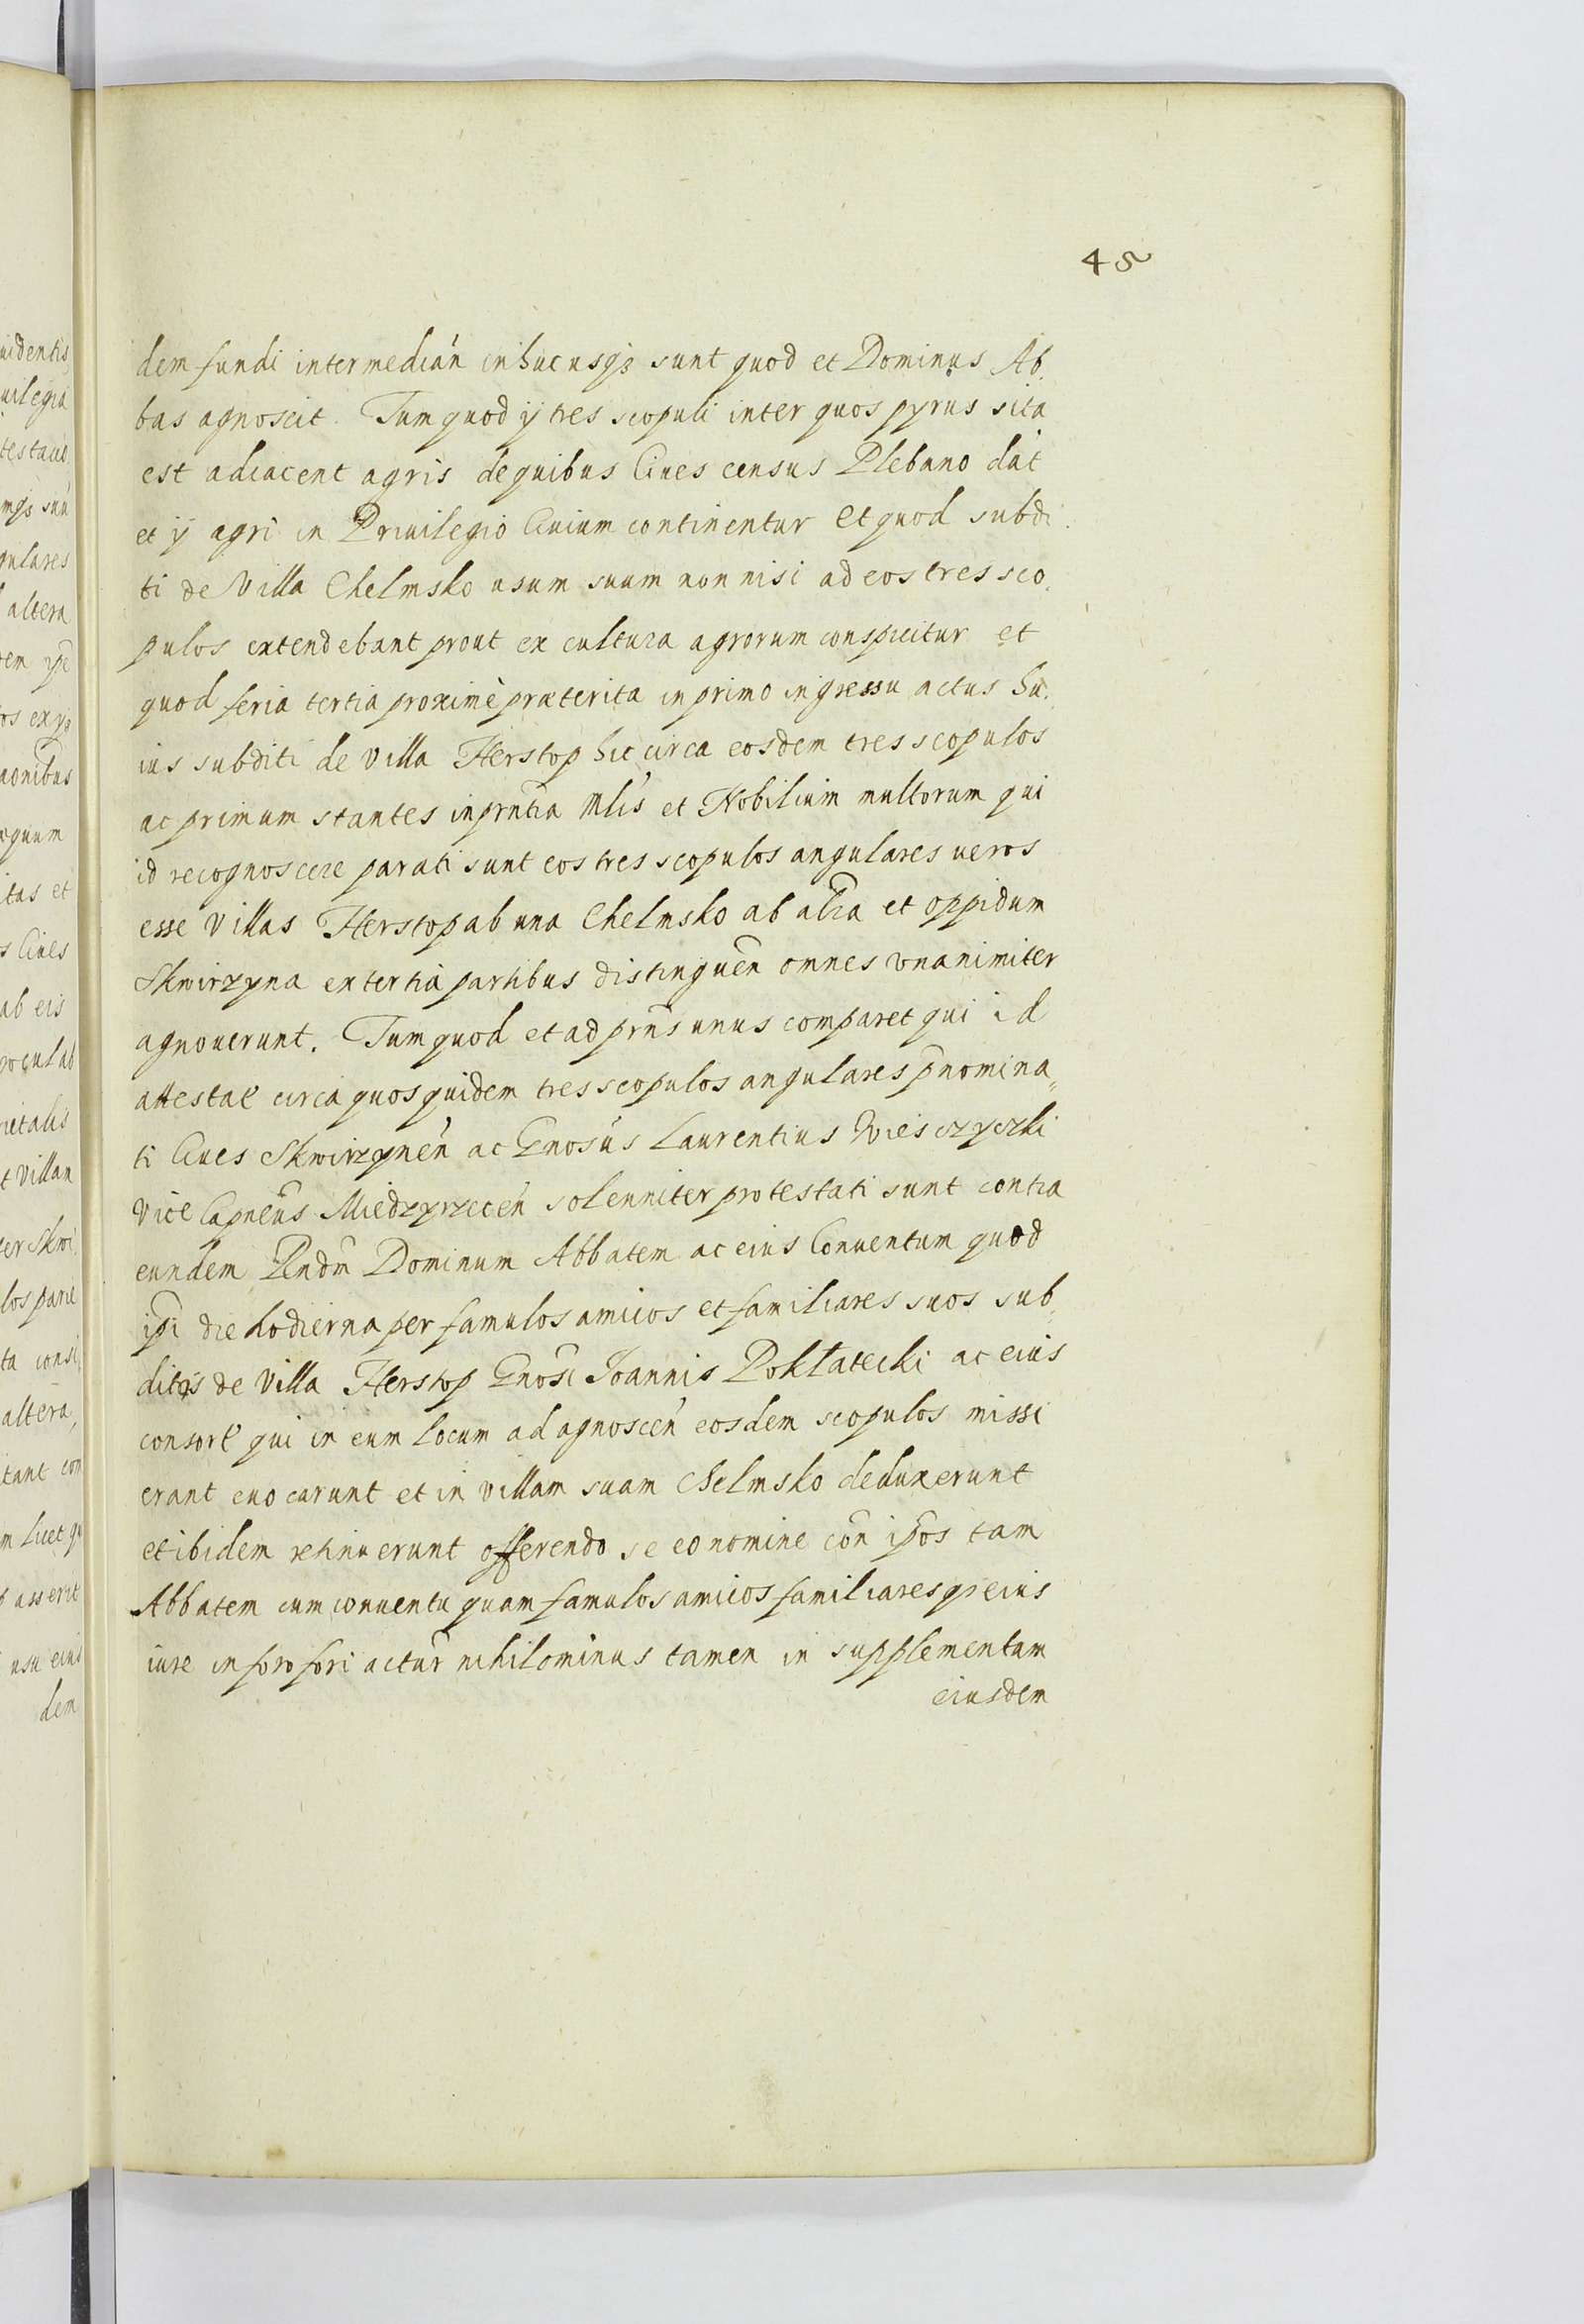 45
dem fundi intermedián in huc usq3 sunt quod et Dominus Ab,
bas agnoscit. Tum quod ij tres scopuli inter quos pyrus sita
est adiacent agris de quibus Ciues census Plebano dát
et ij agri in Priuilegio Ciuium continentur Et quod subdi,
ti de Villa Chelmsko usum suum non nisi ad eos tres sco,
pulos extendebant prout ex cultura agrorum conspicitur et
quod feria tertia proximè præterita in primo ingressu actus hu,
ius subditi de Villa Herstop hic circa eosdem tres scopulos
ac primum stantes in prntia Mlis et Nobilium multorum qui
id recognoscere parati sunt eos tres scopulos angulares ueros
esse Villas Herstop ab una Chelmsko ab alia et oppidum
Skwirzyna ex tertia partibus distinguen omnes vnanimiter
agnouerunt. Tum quod et ad prns unus comparet qui id
attestat circa quos quidem tres scopulos angulares pnomina,,
ti Ciues Skwirzynén ac Gnosus Laurentius Wiesczyczki
Vice Capneus Miedzyrzecén solenniter protestati sunt contra
eundem Rndm Dominum Abbatem ac eius Conuentum quod
ipi die hodierna per famulos amicos et familiares suos sub,,
ditos de Villa Herstop Gnosi Joannis Pokłatecki ac eius
consort qui in eum locum ad agnoscén eosdem scopulos missi
erant euocarunt et in villam suam Chelmsko deduxerunt
et ibidem retinuerunt offerendo se eo nomine con ipos tam
Abbatem cum conuentu quam famulos amicos familiaresq3 eius
iure in foro fori actur nihilominus tamen in supplementum
eiusdem